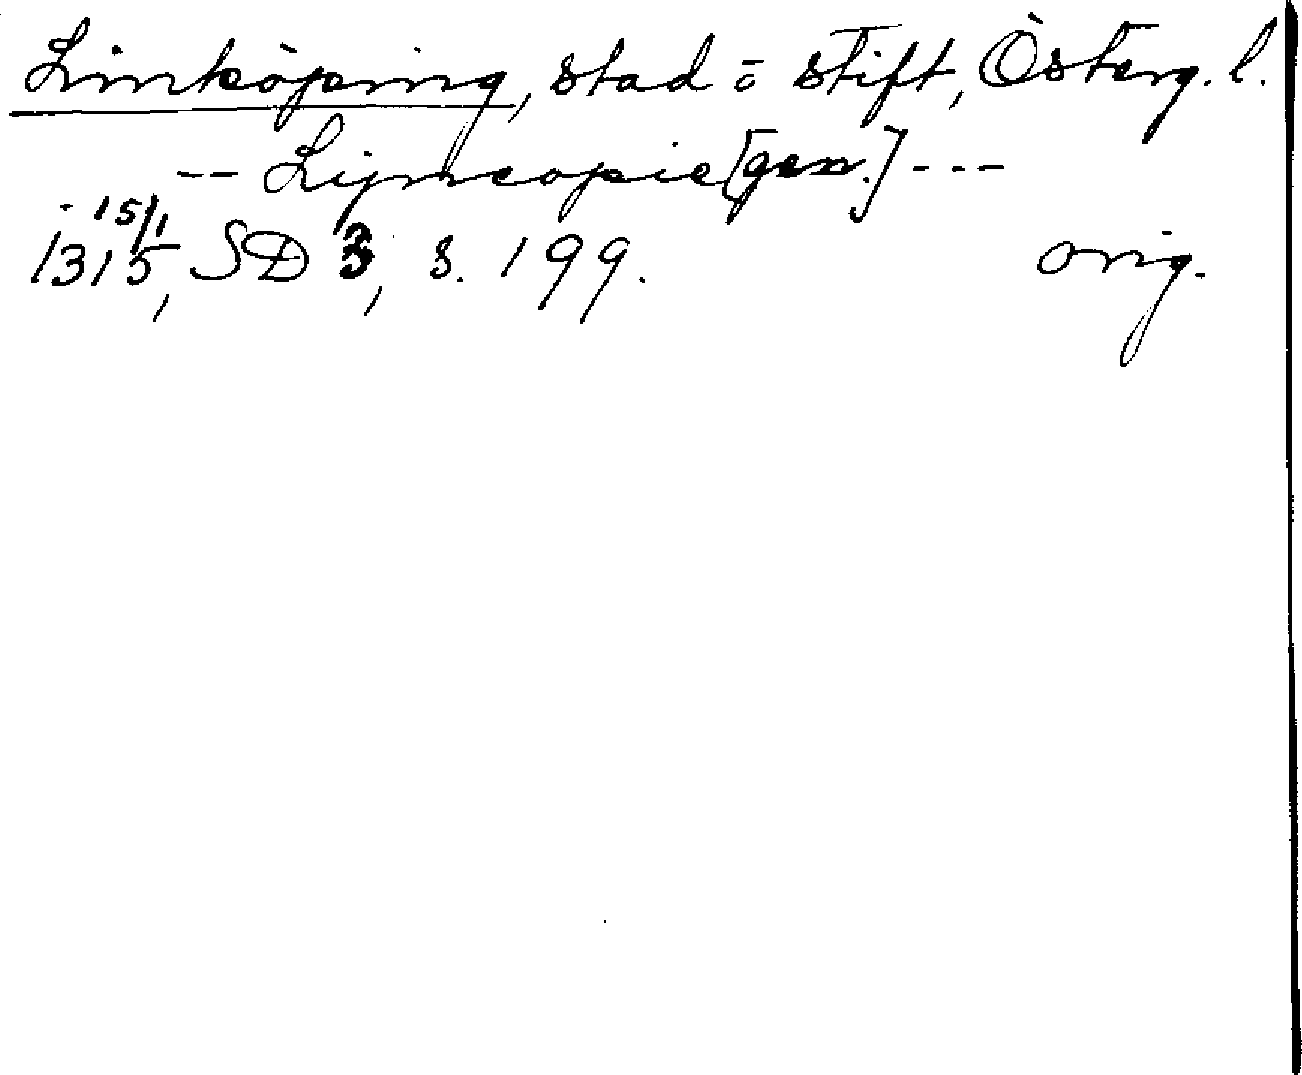 Linköping, stad o stift, Österg. l.
-- Lijncopie [gen.] ---
15/1
1315, SD 3, s. 199. orig.